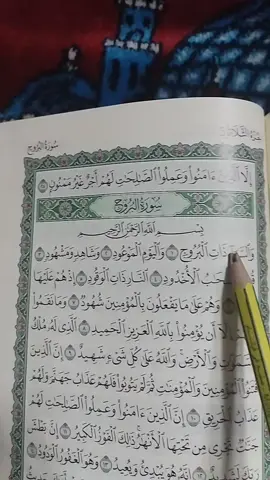 سُورَةُ البُرُوجِ
إِلَّا ٱلَّذِينَ ءَامَنُوا۟ وَعَمِلُوا۟ ٱلصَّٰلِحَٰتِ لَهُمْ أَجْرٌ غَيْرُ مَمْنُونٍ
سُورَةُ البُرُوجِ
بِسْمِ ٱللَّهِ ٱلرَّحْمَٰنِ ٱلرَّحِيمِ
وَٱلسَّمَآءِ ذَاتِ ٱلْبُرُوجِ ١ وَٱلْيَوْمِ ٱلْمَوْعُودِ ٢ وَشَاهِدٍ وَمَشْهُودٍ ٣
قُتِلَ أَصْحَٰبُ ٱلْأُخْدُودِ ٤ ٱلنَّارِ ذَاتِ ٱلْوَقُودِ ٥ إِذْ هُمْ عَلَيْهَا
وَهُمْ عَلَىٰ مَا يَفْعَلُونَ بِٱلْمُؤْمِنِينَ شُهُودٌ ٧ وَمَا نَقَمُوا۟
إِلَّآ أَن يُؤْمِنُوا۟ بِٱللَّهِ ٱلْعَزِيزِ ٱلْحَمِيدِ ٨ ٱلَّذِى لَهُۥ مُلْكُ
ٱلسَّمَٰوَٰتِ وَٱلْأَرْضِ وَٱللَّهُ عَلَىٰ كُلِّ شَىْءٍ شَهِيدٌ ٩ إِنَّ ٱلَّذِينَ
فَتَنُوا۟ ٱلْمُؤْمِنِينَ وَٱلْمُؤْمِنَٰتِ ثُمَّ لَمْ يَتُوبُوا۟ فَلَهُمْ عَذَابُ جَهَنَّمَ وَلَهُمْ
عَذَابُ ٱلْحَرِيقِ ١٠ إِنَّ ٱلَّذِينَ ءَامَنُوا۟ وَعَمِلُوا۟ ٱلصَّٰلِحَٰتِ لَهُمْ
جَنَّٰتٌ تَجْرِى مِن تَحْتِهَا ٱلْأَنْهَٰرُ ذَٰلِكَ ٱلْفَوْزُ ٱلْكَبِيرُ ١١ إِنَّ بَطْشَ
رَبِّكَ لَشَدِيدٌ ١٢ إِنَّهُۥ هُوَ يُبْدِئُ وَيُعِيدُ ١٣ وَهُوَ ٱلْغَفُورُ ٱلْوَدُودُ